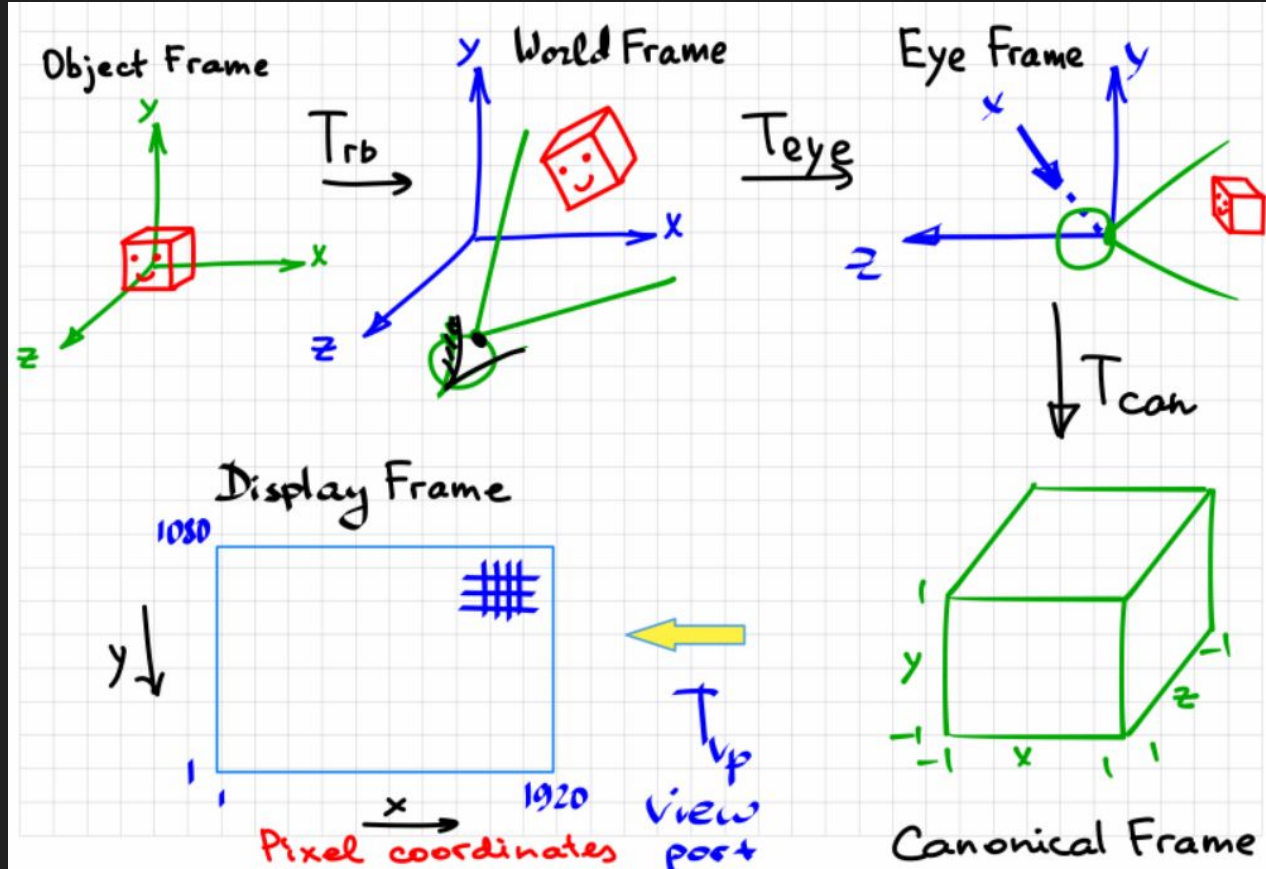 Object Frame
y
x
z
Trb
World Frame
y
x
z
Teye
Eye Frame
x
y
z
Tcan
Display Frame
1080
y
1
1
x
1920
Pixel coordinates
Tvp
view
port
1
y
-1
-1
x
1
1
z
-1
Canonical Frame